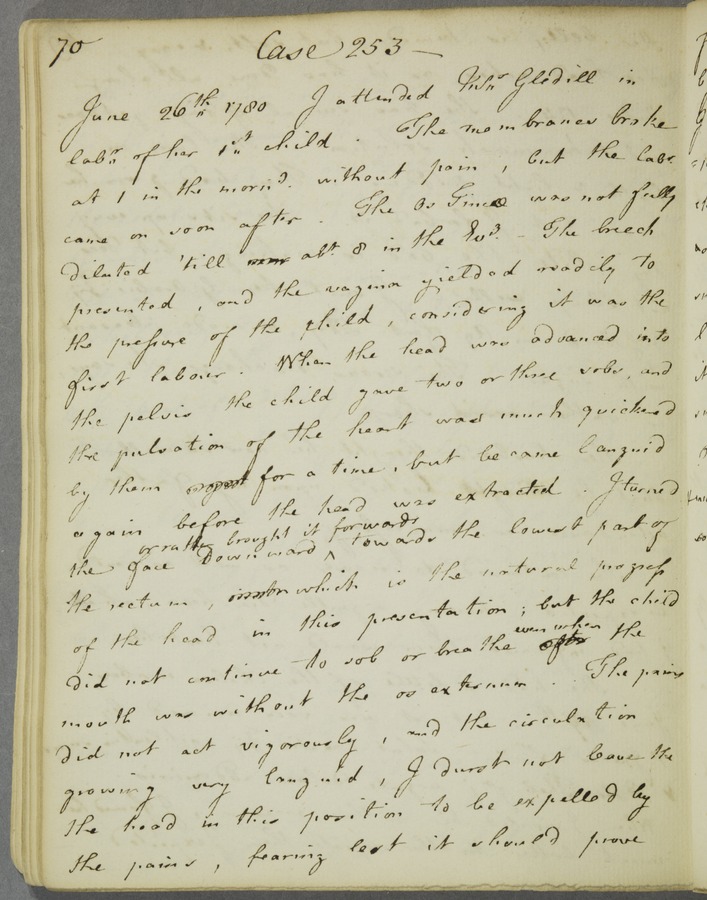 70 Case 253 —
June 26th 1780 I attended Mrs Gledill in
labr of her 1st child. The membranes broke
at 1 in the morng. without pain, but the labr
came on soon after. The Os Tincæ was not fully
dilated 'till abt. 8 in the Evg. — The breech
presented, and the vagina yielded readily to
the pressure of the child, considering it was the
first labour. When the head was advanced into
the pelvis the child gave two or three sobs, and
the pulsation of the heart was much quickened
by them for a time, but became languid
again before the head was extracted. I turned
or rather brought it forwards
the face downward ^ towards the lowest part of
the rectum, which is the natural progress
of the head in this presentation; but the child
did not continue to sob or breathe even when the
mouth was without the os externum. The pains
did not act vigorously, and the circulation
growing very languid, I durst not leave the
the head in this position to be expelled by
the pains, fearing lest it should prove